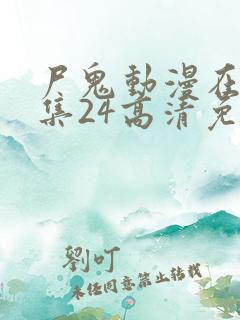 尸鬼動漫在
集24高清免
劉叮
未經同意禁止轉載